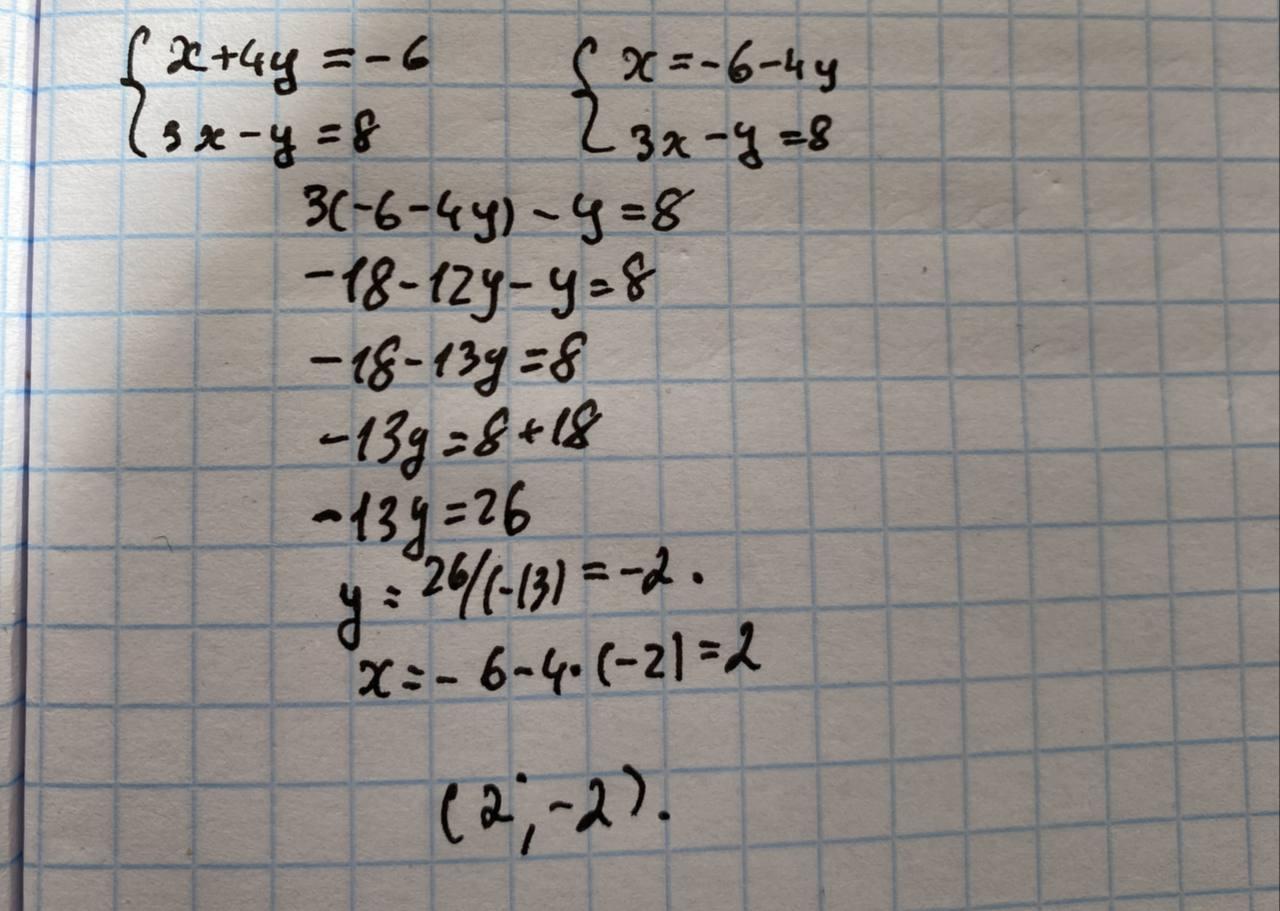 { x+4y=-6 { x=-6-4y
3x-y=8 3x-y=8
3(-6-4y)-y=8
-18-12y-y=8
-18-13y=8
-13y=8+18
-13y=26
y=26/(-13)=-2.
x=-6-4·(-2)=2
(2;-2).